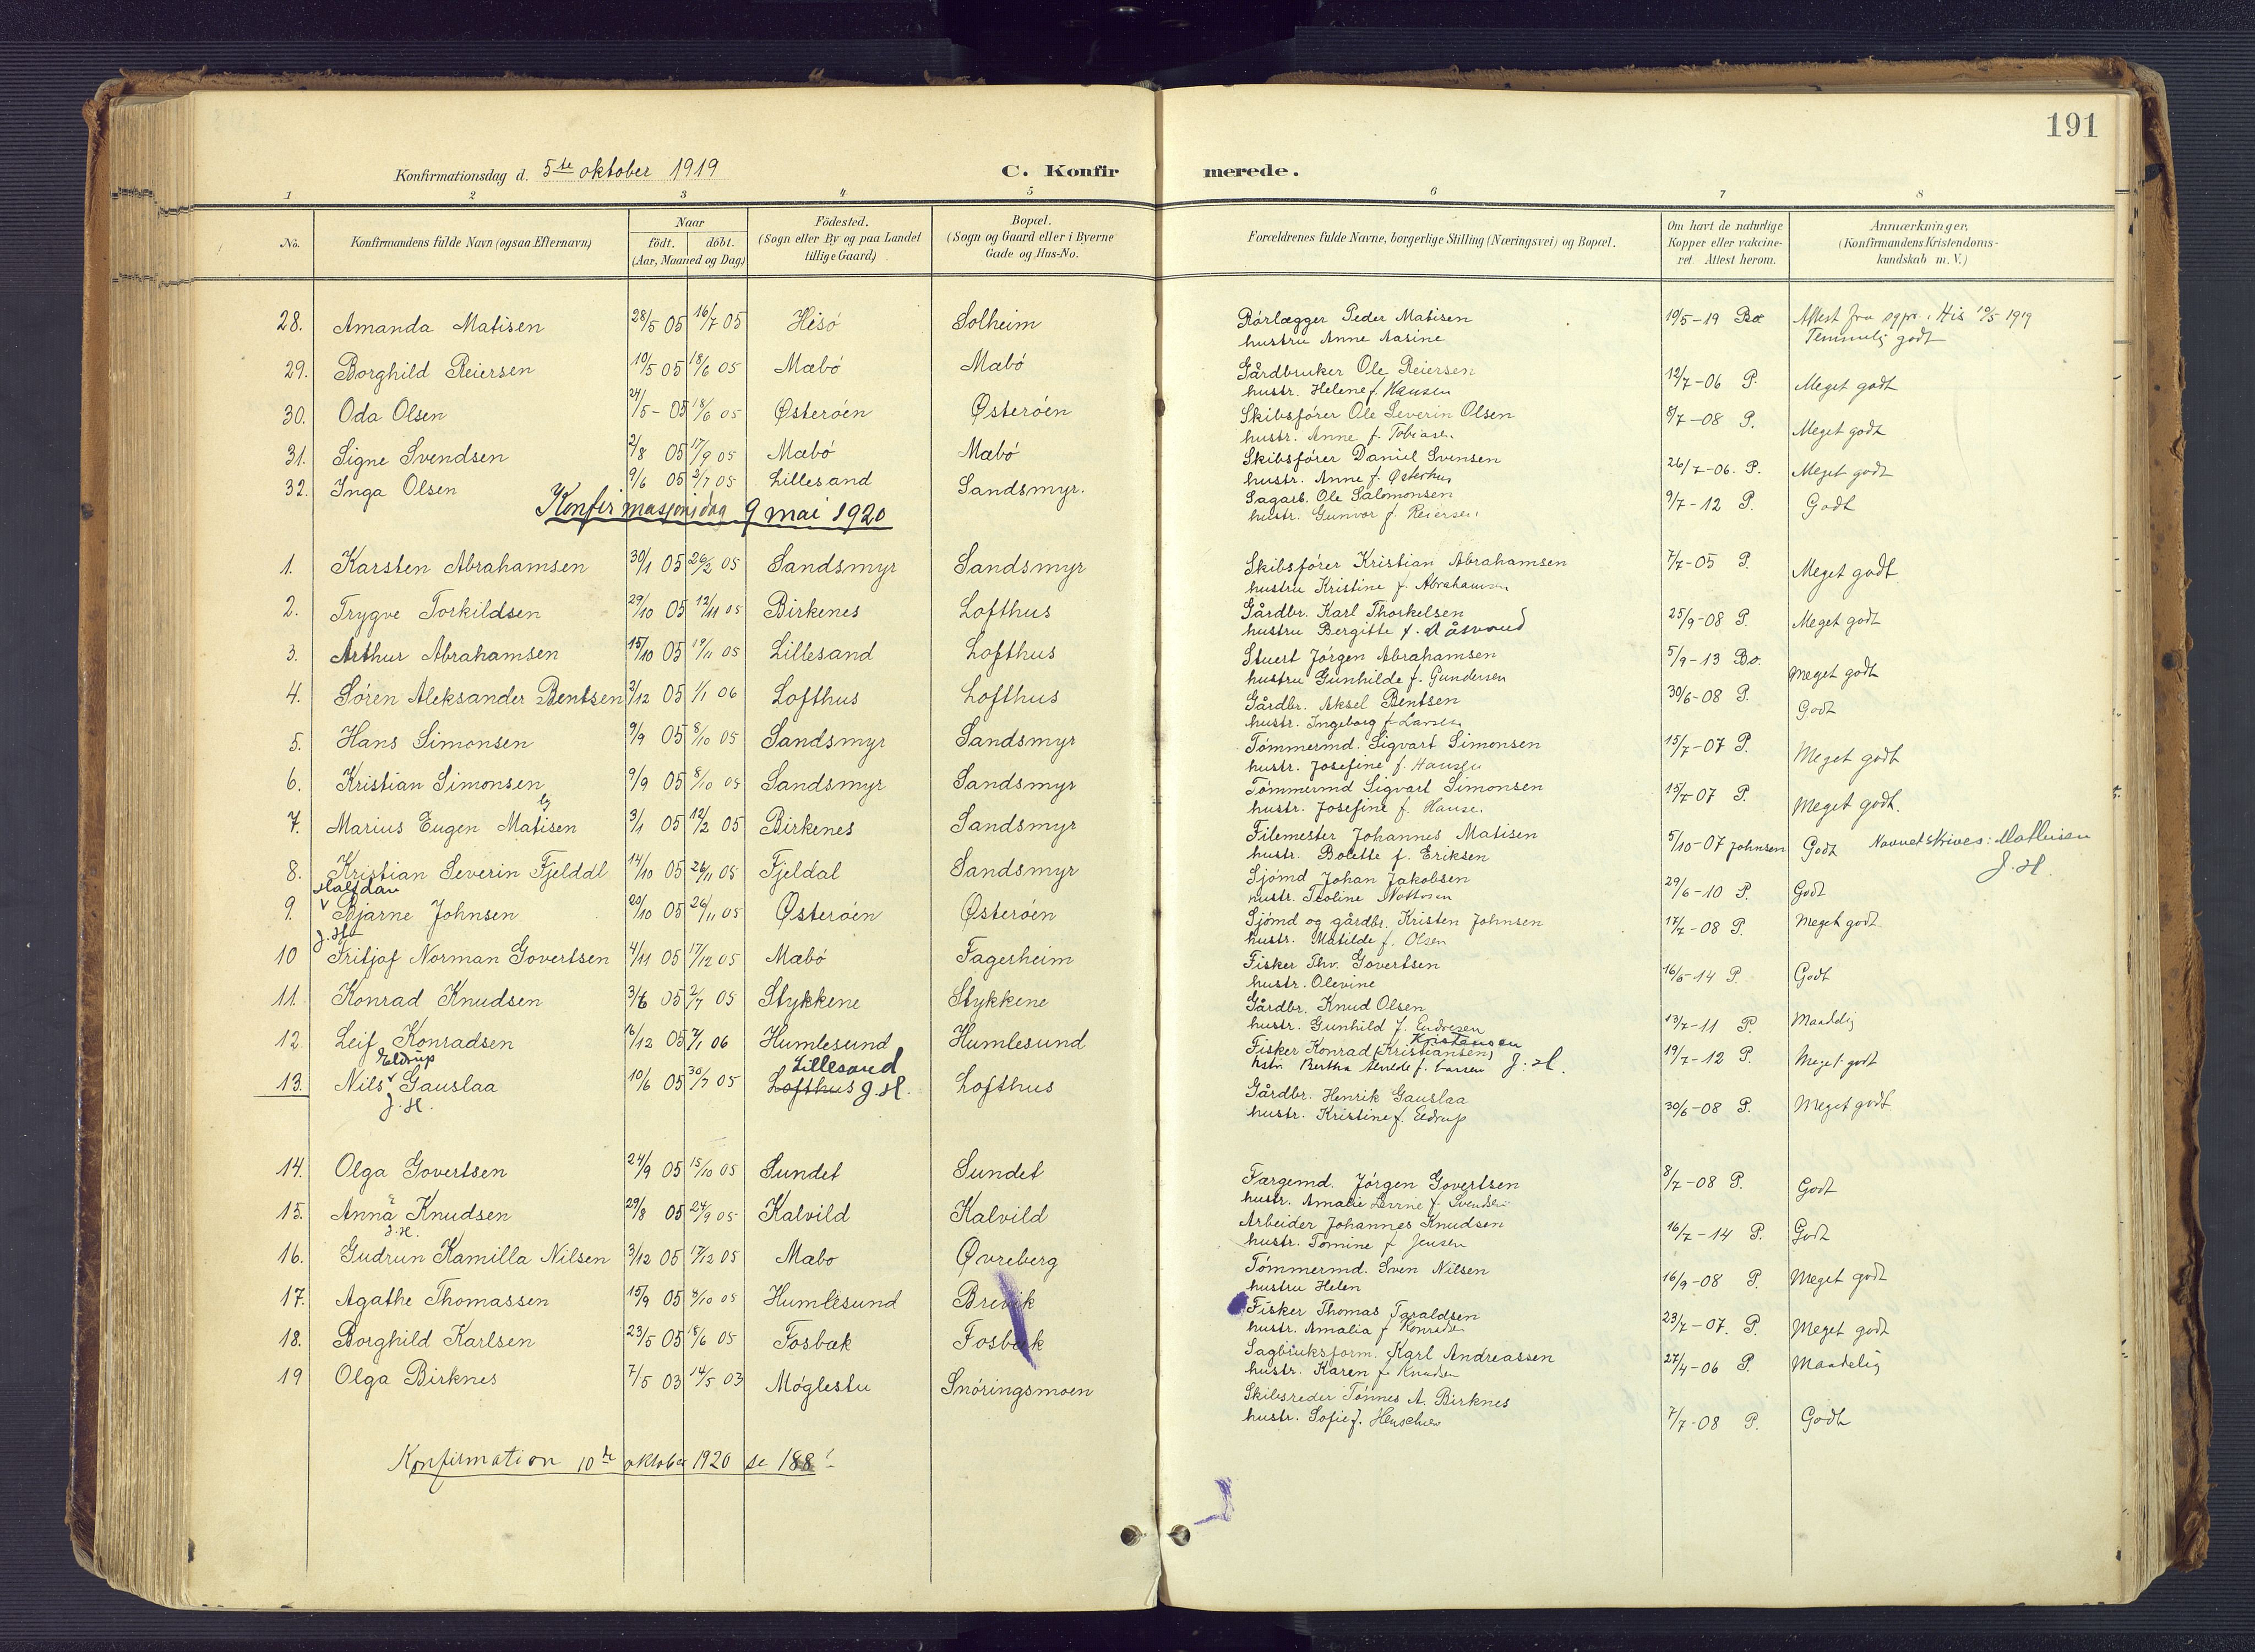 191
Konfirmationsdag d. 5te oktober 1919 C. Konfir merede.
1 2 3 4 5 6 7 8
No. Konfirmandens fulde Navn (ogsaa Efternavn) Naar födt. döbt. (Aar, Maaned og Dag) Födested. (Sogn eller By og paa Landet tillige Gaard) Bopæl. (Sogn og Gaard eller i Byerne Gade og Hus-No. Forældrenes fulde Navne, borgerlige Stilling (Næringsvei) og Bopæl. Om havt de naturlige Kopper eller vakcineret. Attest herom. Anmærkninger, (Konfirmandens Kristendomskundskab m. V.)
28. Amanda Matisen 28/5 05 16/7 05 Hisö Solheim Rörlægger Peder Matisen 19/5-19 Attest fra sgpr. i His 19/5 1919
hustru Anne Aasine Temmelig godt
29. Borghild Reiersen 10/5 05 18/6 05 Mæbö Mæbö Gårdbruker Ole Reiersen 12/7-06 P. Meget godt
hustr. Helene f. Hansen
30. Oda Olsen 24/5-05 18/6 05 Østeröen Østeröen Skibsförer Ole Severin Olsen 8/7-08 P. Meget godt
hustr. Anne f. Tobiasen
31. Signe Svendsen 2/8 05 17/9 05 Mæbö Mæbö Skibsförer Daniel Svensen 26/7-06. P. Meget godt
hustr. Anne f. Østerhus
32. Inga Olsen 9/6 05 2/7 05 Lillesand Sandsmyr. Sagarb. Ole Salomonsen 9/7-12 P. Godt
hustr. Gunvor f. Reiersen
Konfirmasjonsdag 9 mai 1920
1. Karsten Abrahamsen 30/1 05 26/2 05 Sandsmyr Sandsmyr Skibsförer Kristian Abrahamsen 7/7-05 P. Meget godt
hustru Kristine f. Abrahamsen
2. Trygve Torkildsen 29/10 05 12/11 05 Birkenes Lofthus Gårdbr. Karl Thorkelsen 25/9-08 P. Meget godt
hustru Bergitte f.
3. Arthur Abrahamsen 15/10 05 19/11 05 Lillesand Lofthus Stuert Jörgen Abrahamsen 5/9-13 Bo. Meget godt
hustru Gunhilde f. Gundersen
4. Sören Aleksander Bentsen 3/12 05 1/1 06 Lofthus Lofthus Gårdbr. Aksel Bentsen 30/6-08 P. Godt
hustr. Ingeborg f. Larsen
5. Hans Simonsen 9/9 05 8/10 05 Sandsmyr Sandsmyr Tömmermd. Sigvart Simonsen 15/7-07 P. Meget godt
hustr. Josefine f. Hansen
6. Kristian Simonsen 9/9 05 8/10 05 Sandsmyr Sandsmyr Tömmermd Sigvart Simonsen 15/7-07 P. Meget godt.
hustr. Josefine f. Hansen
7. Marius Eugen Matisen 3/1 05 12/2 05 Birkenes Sandsmyr Filemester Johannes Matisen 5/10-07 Johnsen Godt Navnet skrives: Mathisen
hustr. Bolette f. Eriksen J. H.
8. Kristian Severin Fjelddl 14/10 05 26/11 05 Fjeldal Sandsmyr Sjömd Johan Jakobsen 29/6-10 P. Godt
hustr. Teoline
Halfdan
9. v Bjarne Johnsen 20/10 05 26/11 05 Østeröen Østeröen Sjömd og gårdbr. Kristen Johnsen 17/7-08 P. Meget godt
J. H. hustr. Matilde f. Olsen
10 Fritjof Norman Govertsen 4/11 05 17/12 05 Mæbö Fagerheim Fisker Thv. Govertsen 16/5-14 P. Godt
hustr. Olevine
11. Konrad Knudsen 3/6 05 2/7 05 Stykkene Stykkene Gårdbr. Knud Olsen 13/7-11 P. Maadelig
hustr. Gunhild f. Endresen
12 Leif Konradsen 6/12 05 7/1 06 Humlesund Humlesund Fisker Konrad (Kristiansen) Kristensen 19/7-12 P. Meget godt
hstr. Bertha f. Larsen J. H.
Eldrup Lillesand
13. Nils v Gauslaa 10/6 05 30/7 05 Lofthus J. H. Lofthus Gårdbr. Henrik Gauslaa 30/6-08 P. Meget godt
J. H. hustr. Kristine f. Eldrup
14. Olga Govertsen 24/9 05 15/10 05 Sundet Sundet Færgemd. Jörgen Govertsen 8/7-08 P. Godt
hustr. Amalie f. Svendsen
15. Anna Knudsen 29/8 05 24/9 05 Kalvild Kalvild Arbeider Johannes Knudsen 16/7-14 P. Godt
J. H. hustr. Tomine f. Jensen
16. Gudrun Kamilla Nilsen 3/12 05 17/12 05 Mæbo Øvreberg Tömmermd. Sven Nilsen 16/9-08 P. Meget godt
hustru Helen
17. Agathe Thomassen 15/9 05 8/10 05 Humlesund Brevik Fisker Thomas Taraldsen 23/7-07. P. Meget godt
hustr. Amalia f. Konradsen
18. Borghild Karlsen 23/5 05 18/6 05 Fosbæk Fosbæk Sagbruksform. Karl Andreassen 27/4-06 P. Maadelig
hustr. Karen f. Knudsen
19 Olga Birknes 7/5 03 14/5 03 Möglestu Snöringsmoen Skibsreder Tönnes A. Birknes 7/7-08 P. Godt
hustr. Sofie f.
Konfirmation 10de oktober 1920 se 188